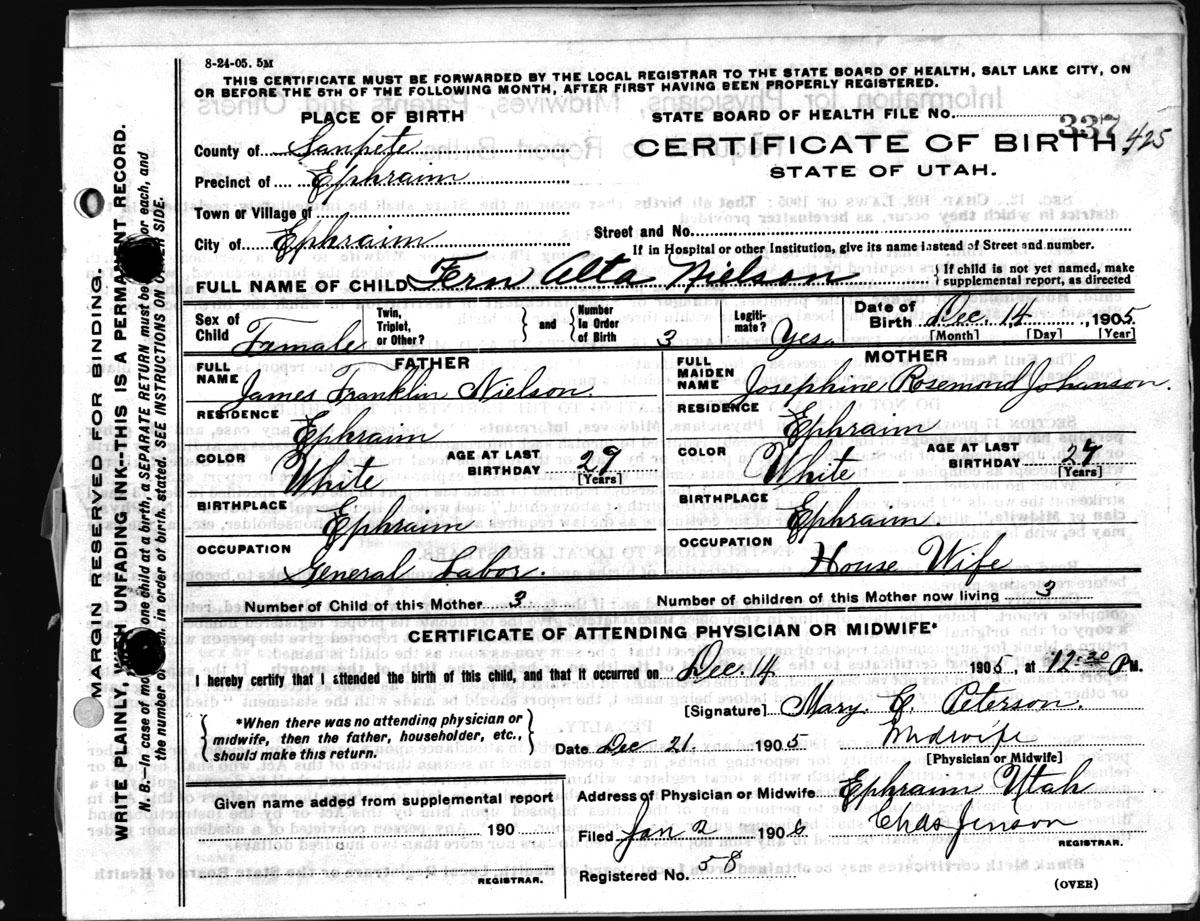 8-24-05. 5M
THIS CERTIFICATE MUST BE FORWARDED BY THE LOCAL REGISTRAR TO THE STATE BOARD OF HEALTH, SALT LAKE CITY, ON
OR BEFORE THE 5TH OF THE FOLLOWING MONTH, AFTER FIRST HAVING BEEN PROPERLY REGISTERED.
PLACE OF BIRTH
STATE BOARD OF HEALTH FILE No.
337
425
County of Sanpete
CERTIFICATE OF BIRTH
STATE OF UTAH.
Precinct of Ephraim
Town or Village of
City of Ephraim
Street and No.
If in Hospital or other Institution, give its name instead of Street and number.
FULL NAME OF CHILD Fern Alta Nielson
{ If child is not yet named, make
supplemental report, as directed
Sex of Child Famale
Twin, Triplet, or Other? } and { Number In Order of Birth 3
Legiti-mate? Yes
Date of Birth Dec. 14, 1905
[Month] [Day] [Year]
FATHER
FULL NAME James Franklin Nielson
RESIDENCE Ephraim
COLOR White
AGE AT LAST BIRTHDAY 29 [Years]
BIRTHPLACE Ephraim
OCCUPATION General Labor.
MOTHER
FULL MAIDEN NAME Josephine Rosemond Johanson.
RESIDENCE Ephraim
COLOR White
AGE AT LAST BIRTHDAY [Years]
BIRTHPLACE Ephraim.
OCCUPATION House Wife
Number of Child of this Mother 3
Number of children of this Mother now living 3
CERTIFICATE OF ATTENDING PHYSICIAN OR MIDWIFE*
I hereby certify that I attended the birth of this child, and that it occurred on Dec. 14 1905, at 12-30 P M.
{ *When there was no attending physician or
midwife, then the father, householder, etc.,
should make this return. }
[Signature] Mary C. Peterson.
Date Dec 21. 1905
Midwife
[Physician or Midwife]
Given name added from supplemental report
190
REGISTRAR.
Address of Physician or Midwife Ephraim Utah
Filed Jan 2 1906 Chas Jenson
REGISTRAR.
Registered No. 58
(OVER)
MARGIN RESERVED FOR BINDING.
WRITE PLAINLY, WITH UNFADING INK--THIS IS A PERMANENT RECORD.
N. B.--In case of more one child at a birth, a SEPARATE RETURN must be for each, and
the number in order of birth, stated. SEE INSTRUCTIONS ON OTHER SIDE.